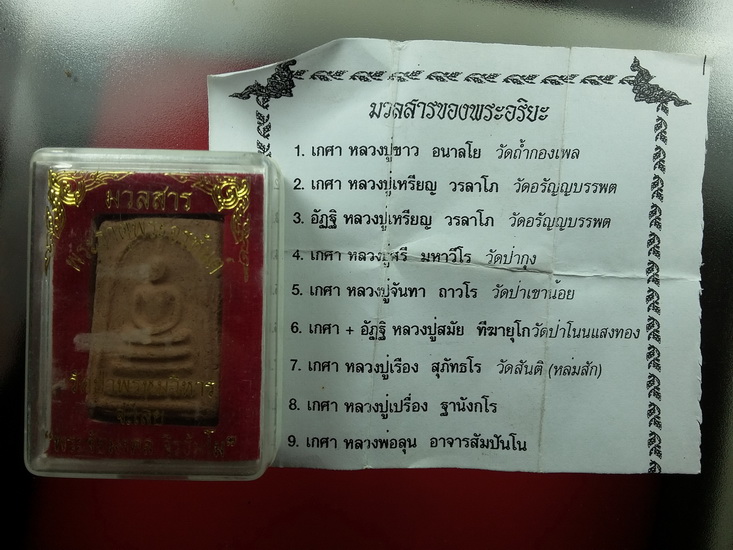 มวลสารของพระอริยะ
1. เกศา หลวงปู่ขาว อนาลโย วัดถ้ำกองเพล
2. เกศา หลวงปู่เหรียญ วรลาโภ วัดอรัญญบรรพต
3. อัฏฐิ หลวงปู่เหรียญ วรลาโภ วัดอรัญญบรรพต
4. เกศา หลวงปู่ศรี มหาวีโร วัดป่ากุง
5. เกศา หลวงปู่จันทา ถาวโร วัดป่าเขาน้อย
6. เกศา + อัฏฐิ หลวงปู่สมัย ทีฆายุโกวัดป่าโนนแสงทอง
7. เกศา หลวงปู่เรือง สุภัทธโร วัดสันติ (หล่มสัก)
8. เกศา หลวงปู่เปรื่อง ฐานังกโร
9. เกศา หลวงพ่อลุน อาจารสัมปันโน
มวลสาร
จ.เลย